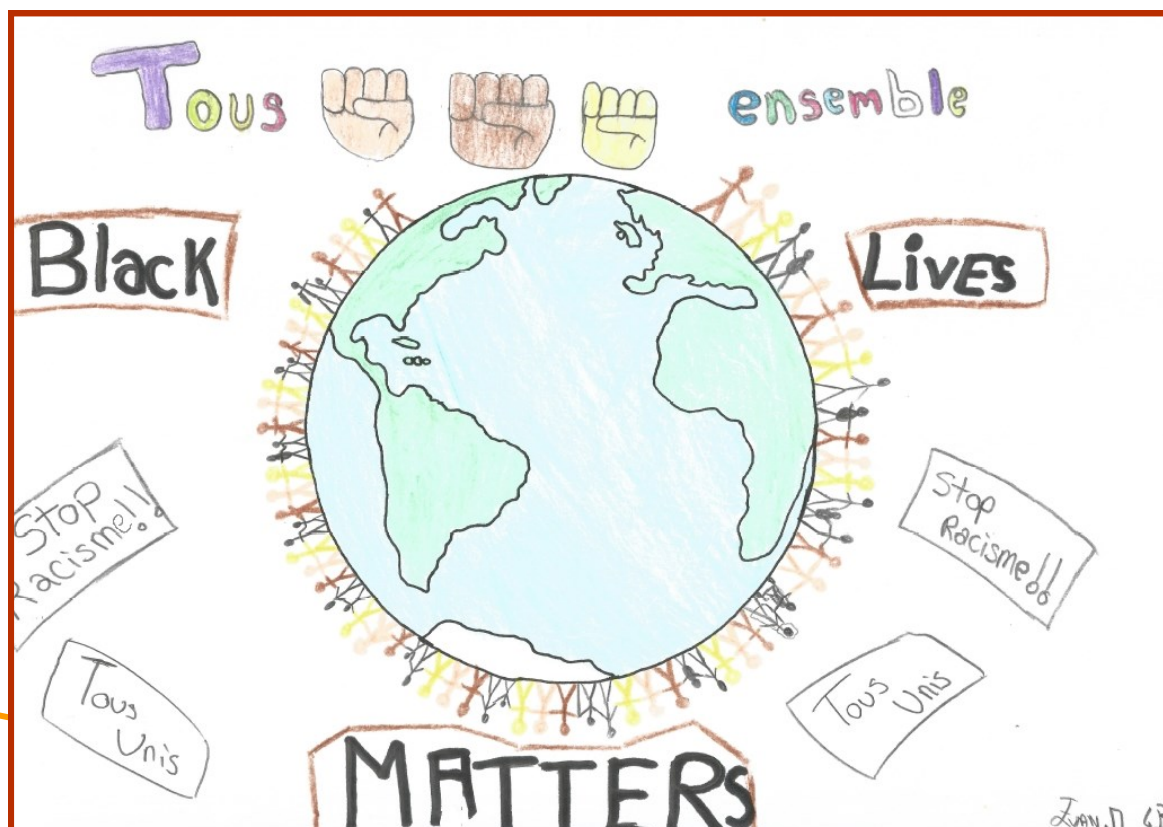 Tous ensemble
Black
Lives
Stop
Racisme!!
Stop
Racisme!!
Tous
Unis
Tous
Unis
MATTERS